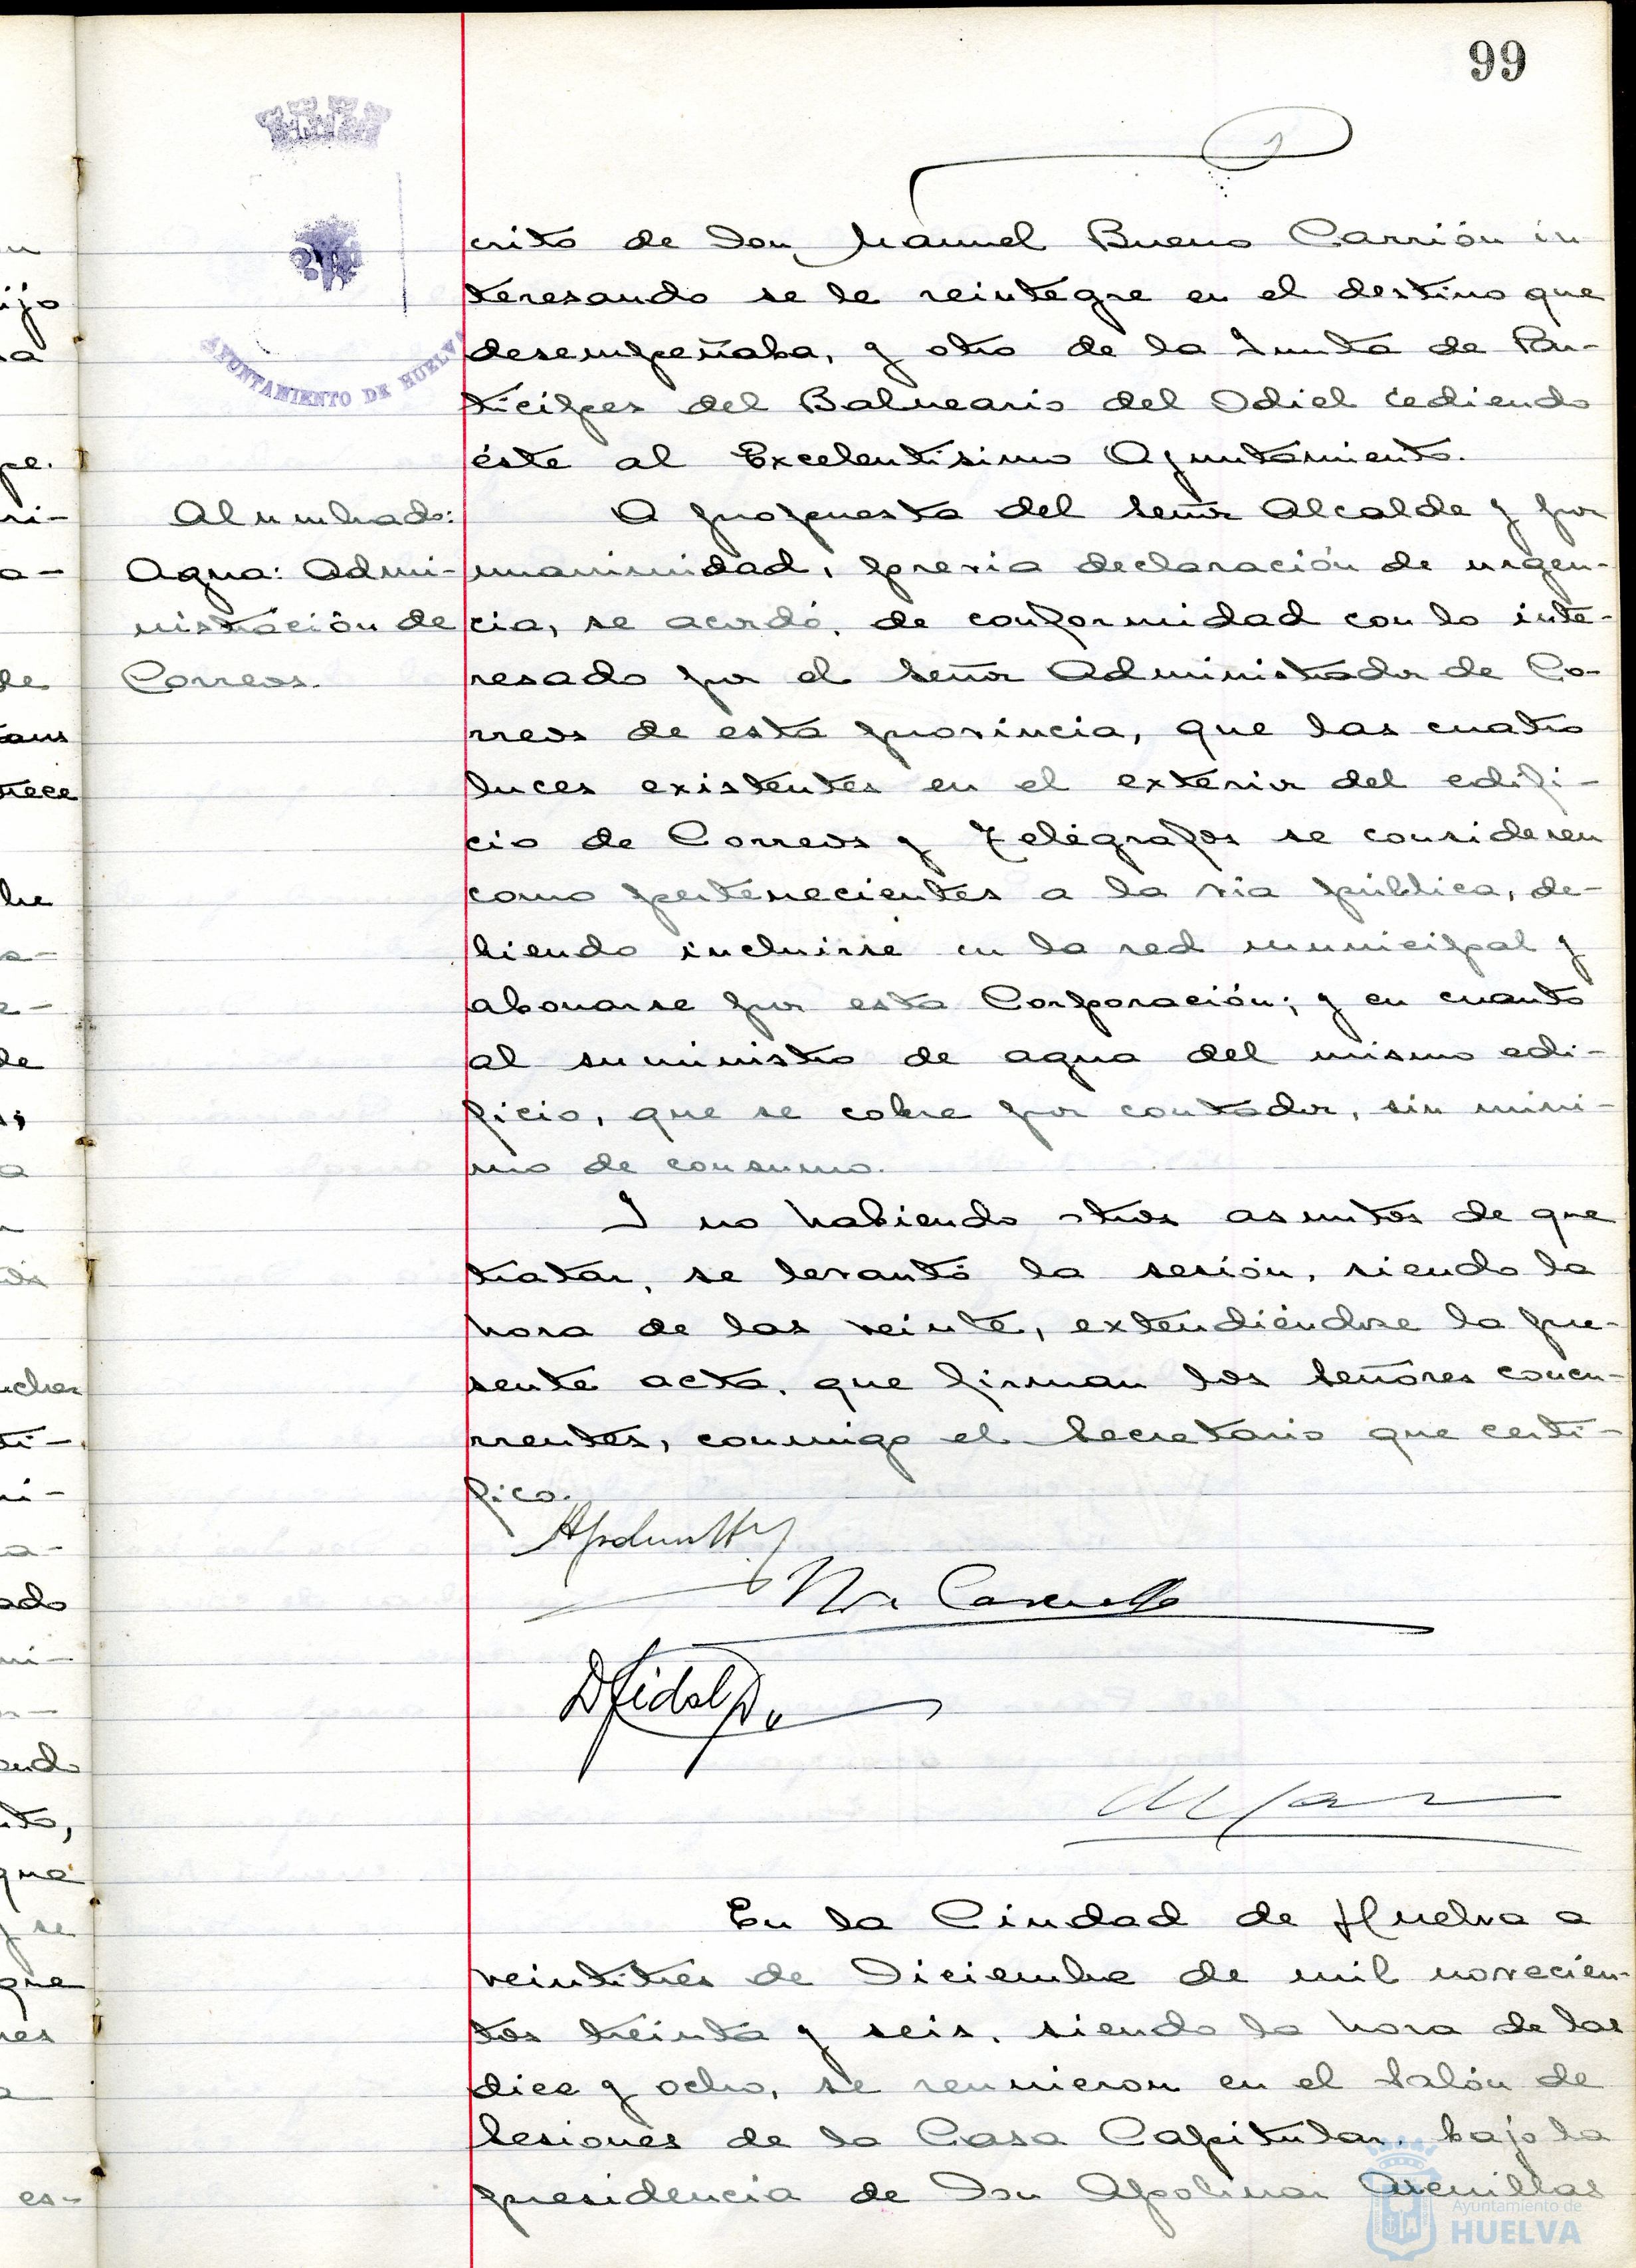 99
AYUNTAMIENTO DE HUELVA
crito de Don Manuel Bueno Carrión in
teresando se le reintegre en el destino que
desempeñaba, y otro de la Junta de Par-
tícipes del Balneario del Odiel cediendo
éste al Excelentísimo Ayuntamiento.
Alumbrado:
Agua: Admi-
nistración de
Correos.
A propuesta del Señor Alcalde y por
unanimidad, previa declaración de urgen-
cia, se acordó, de conformidad con lo inte-
resado por el Señor Administrador de Co-
rreos de esta provincia, que las cuatro
luces existentes en el exterior del edifi-
cio de Correos y Telégrafos se consideren
como pertenecientes a la vía pública, de-
biendo incluirse en la red municipal y
abonarse por esta Corporación; y en cuanto
al suministro de agua del mismo edi-
ficio, que se cobre por contador, sin míni-
mo de consumo.
Y no habiendo otros asuntos de que
tratar, se levantó la sesión, siendo la
hora de las veinte, extendiéndose la pre-
sente acta, que firman los Señores concu-
rrentes, conmigo el Secretario que certi-
fico.
En la Ciudad de Huelva a
veintitrés de Diciembre de mil novecien-
tos treinta y seis, siendo la hora de las
diez y ocho, se reunieron en el Salón de
Sesiones de la Casa Capitular, bajo la
presidencia de Don Apolinar Arenillas
Ayuntamiento de
HUELVA